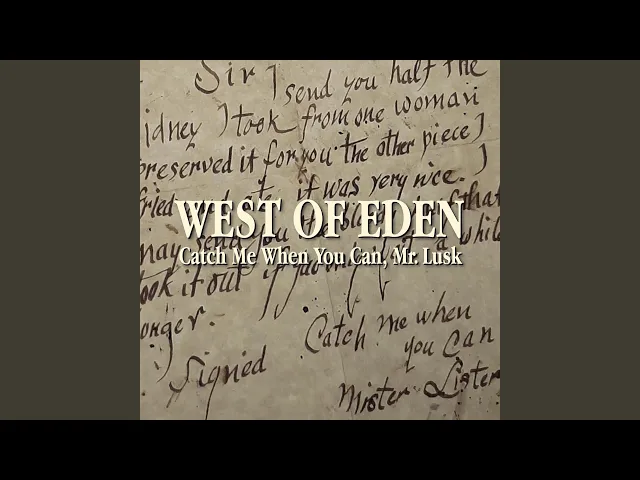 Sir I send you half the
idney I took from one woman
preserved it for you the other piece I
fried it was very nice. I
WEST OF EDEN
may send you the that
Catch Me When You Can, Mr. Lusk
took it out if a while
onger.
Catch me when
you Can
Signed
Mister Lister